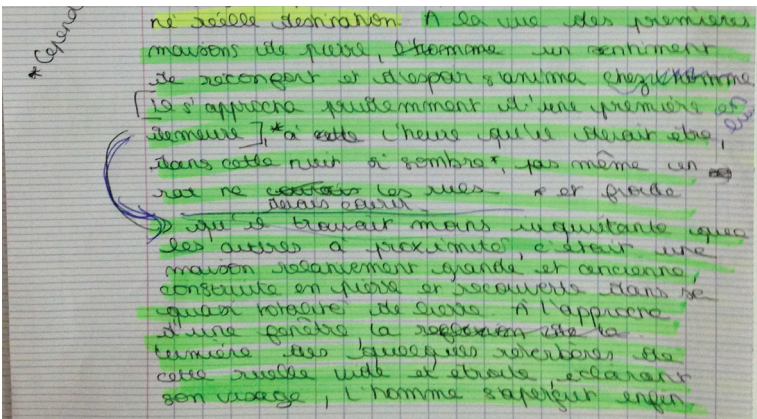 * Cepend
né réelle destination. A la vue des premières
maisons de pierre, l'homme un sentiment
de réconfort et d'espoir s'anima chez l'homme
[Il s'approcha prudemment d'une première
demeure], *à cette l'heure qu'il devait être,
dans cette nuit si sombre*, pas même un
rat ne les rues * et froide
qu'il trouvait moins inquiétante que
les autres à proximité, c'était une
maison relativement grande et ancienne,
construite en pierre et recouverte dans sa
quasi totalité de lierre. A l'approche
d'une fenêtre la reflexion de la
lumière des quelques réverbères de
cette ruelle vide et étroite, éclairant
son visage, l'homme s'aperçut enfin